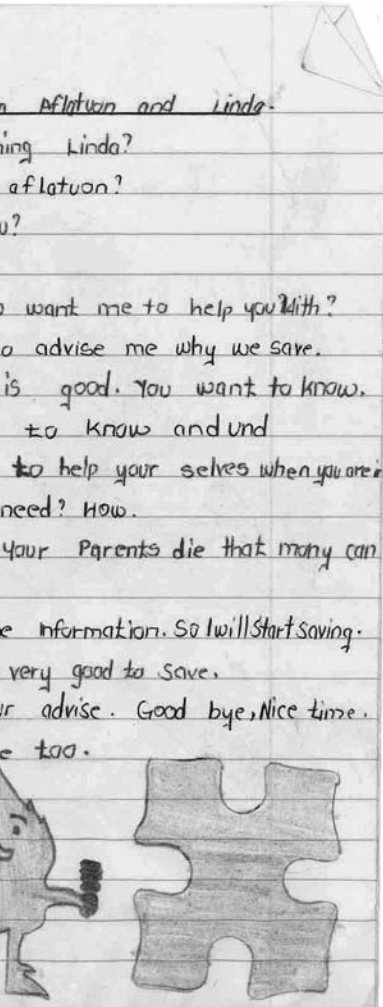 Aflatuon and Linda.
ing Linda?
aflatuon?
u?
want me to help you With?
o advise me why we save.
is good. You want to know.
to know and und
to help your selves when you are in
need? How.
your Parents die that mony can
e information. So I will Start saving.
very good to save.
ur advise. Good bye, Nice time.
e too.